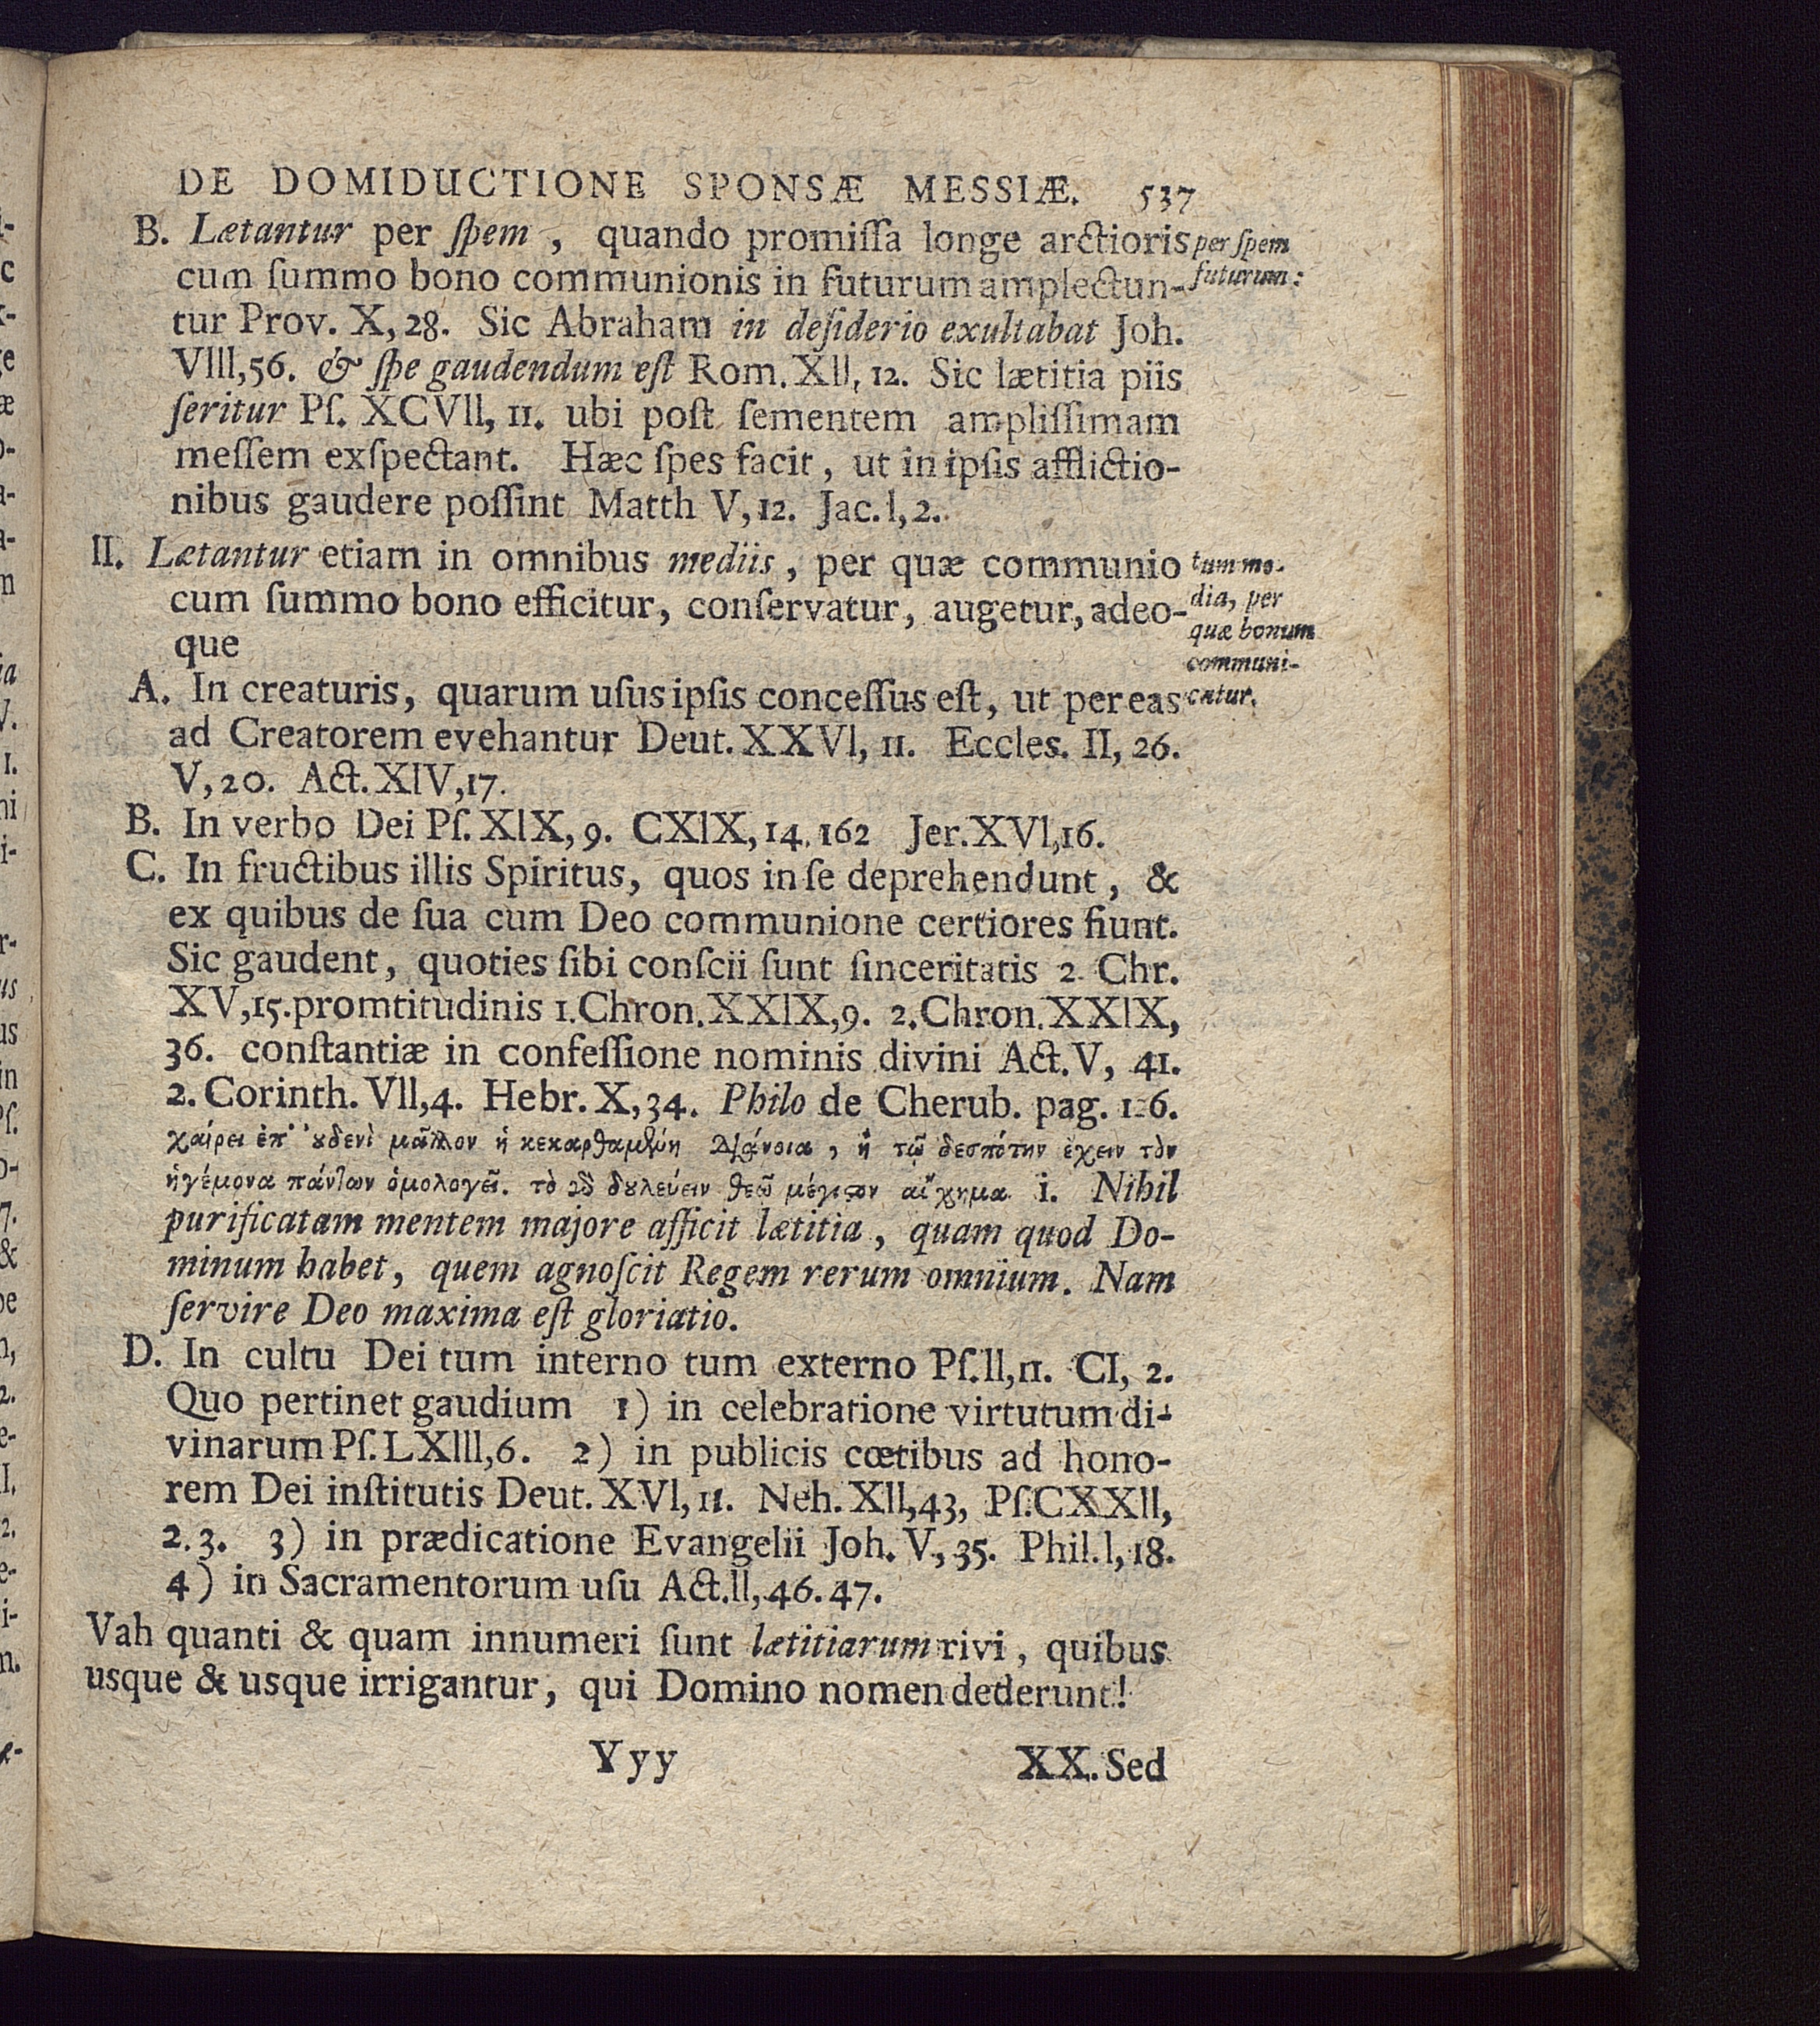 DE DOMIDUCTIONE SPONSÆ MESSIÆ. 537
B. Lætantur per ſpem, quando promiſſa longe arctioris
cum ſummo bono communionis in futurum amplectun-
tur Prov. X, 28. Sic Abraham in deſiderio exultabat Joh.
VIII, 56. & ſpe gaudendum eſt Rom. XII, 12. Sic lætitia piis
ſeritur Pſ. XCVII, 11. ubi poſt ſementem ampliſſimam
meſſem exſpectant. Hæc ſpes facit, ut in ipſis afflictio-
nibus gaudere poſſint Matth V, 12. Jac. I, 2.
per ſpem
futurum:
II. Lætantur etiam in omnibus mediis, per quæ communio
cum ſummo bono efficitur, conſervatur, augetur, adeo-
que
tum me-
dia, per
quæ bonum
communi-
catur.
A. In creaturis, quarum uſus ipſis conceſſus eſt, ut per eas
ad Creatorem evehantur Deut. XXVI, 11. Eccles. II, 26.
V, 20. Act. XIV, 17.
B. In verbo Dei Pſ. XIX, 9. CXIX, 14. 162 Jer. XVI, 16.
C. In fructibus illis Spiritus, quos in ſe deprehendunt, &
ex quibus de ſua cum Deo communione certiores fiunt.
Sic gaudent, quoties ſibi conſcii ſunt ſinceritatis 2. Chr.
XV, 15. promtitudinis 1. Chron. XXIX, 9. 2. Chron. XXIX,
36. conſtantiæ in confeſſione nominis divini Act. V, 41.
2. Corinth. VII, 4. Hebr. X, 34. Philo de Cherub. pag.
χαίρει ἐπ' ȣ̓δενὶ μᾶλλον ἡ κεκαρθαμένη διάνοια, ἢ τῷ δεσπότην ἔχειν τὸν
ἡγέμονα πάντων ὁμολογεῖ. τὸ γὰρ δȣλεύειν θεῷ μέγιϛον αὔχημα i. Nihil
purificatam mentem majore afficit lætitia, quam quod Do-
minum habet, quem agnoſcit Regem rerum omnium. Nam
ſervire Deo maxima eſt gloriatio.
D. In cultu Dei tum interno tum externo Pſ. II, 11. CI, 2.
Quo pertinet gaudium 1) in celebratione virtutum di-
vinarum Pſ. LXIII, 6. 2) in publicis cœtibus ad hono-
rem Dei inſtitutis Deut. XVI, 11. Neh. XII, 43, Pſ. CXXII,
2. 3. 3) in prædicatione Evangelii Joh. V, 35. Phil. I, 18.
4) in Sacramentorum uſu Act. II, 46. 47.
Vah quanti & quam innumeri ſunt lætitiarum rivi, quibus
usque & usque irrigantur, qui Domino nomen dederunt!
Yyy XX. Sed